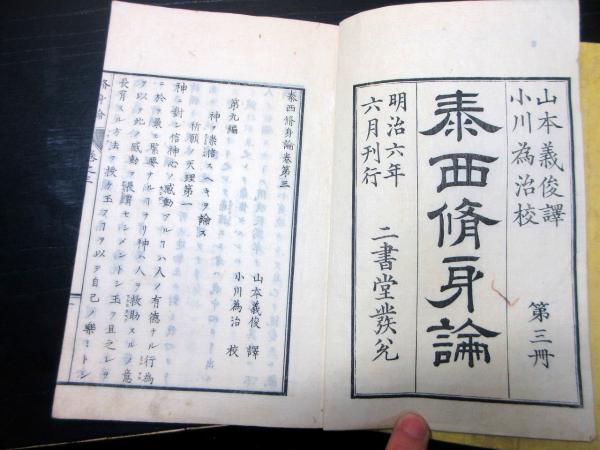 山本義俊譯
小川為治校
泰西脩身論
第三冊
明治六年
六月刊行
二書堂發兌
泰西脩身論卷第三
山本義俊 譯
小川為治 校
第九編
神ヲ崇信スヘキヲ論ス
祈願ノ天理第一
神ニ對シ信神心ノ感動アルハ人ノ有德ナル行為
ニ於テ最モ緊要ナル
神ハ人ヲ救助スルノ意
ヲ以テ此ノ感動ヲ
長育スル方法ヲ
ヲ以テ自己ノ樂
脩身論
卷之三